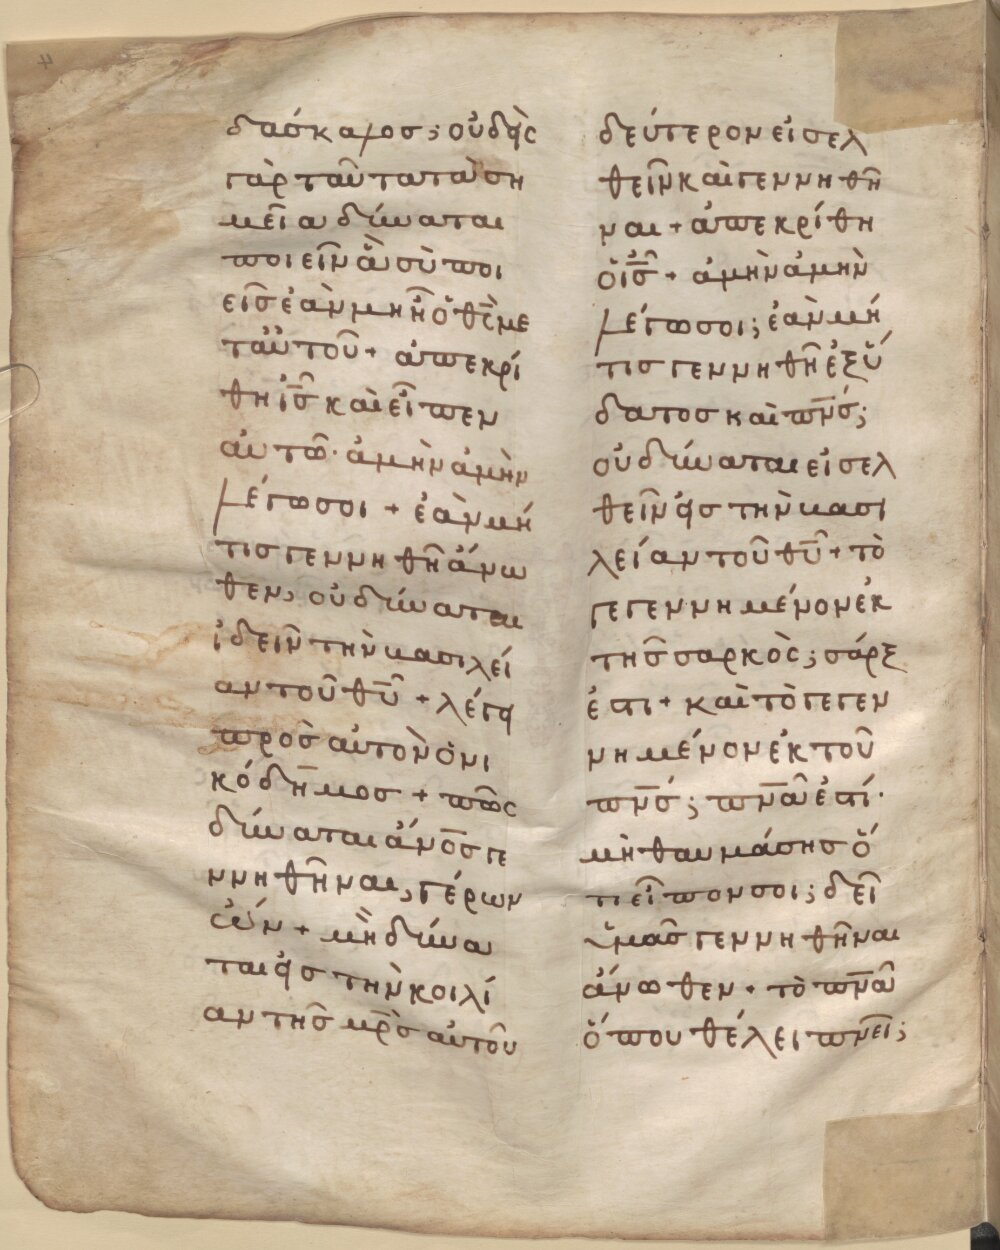 δάσκαλοσ; οὐδεὶς
γὰρ ταῦτα τὰ ση
μεῖα δύναται
ποιεῖν ἃ σὺ ποι
εῖσ ἐὰν μὴ ἦ ὁ θ̅ς̅ με
τ' αὐτοῦ + ἀπεκρί
θη ἰ̅σ̅ καὶ εἶπεν
αὐτῶ · ἀμὴν ἀμὴν
λέγω σοι + ἐὰν μή
τισ γεννηθῆ ἄνω
θεν, οὐ δύναται
ἰδεῖν τὴν βασιλεί
αν τοῦ θ̅υ̅ + λέγει
πρὸσ αὐτὸν ὁ νι
κόδημοσ + πῶς
δύναται ἄν̅ο̅σ̅ γε
ννηθῆναι, γέρων
ὤν + μὴ δύνα
ται εἰσ τὴν κοιλί
αν τῆσ μ̅ρ̅ὸ̅σ̅ αὐτοῦ
δεύτερον εἰσελ
θεῖν καὶ γεννηθῆ
ναι + ἀπεκρίθη
ὁ ἰ̅σ̅ + ἀμὴν ἀμὴν
λέγω σοι; ἐὰν μή
τισ γεννηθῆ ἐξ ὕ
δατοσ καὶ π̅ν̅σ̅;
οὐ δύναται εἰσελ
θεῖν εἰσ τὴν βασι
λείαν τοῦ θ̅υ̅ + τὸ
γεγεννημένον ἐκ
τῆσ σαρκὸς; σάρξ
ἐστι + καὶ τὸ γεγεν
νημένον ἐκ τοῦ
π̅ν̅σ̅; π̅ν̅α̅ ἐστί·
μὴ θαυμάσησ ὅ
τι εἶπον σοι; δεῖ
ὑμᾶσ γεννηθῆναι
ἄνωθεν + τὸ π̅ν̅α̅
ὅπου θέλει π̅ν̅εῖ;